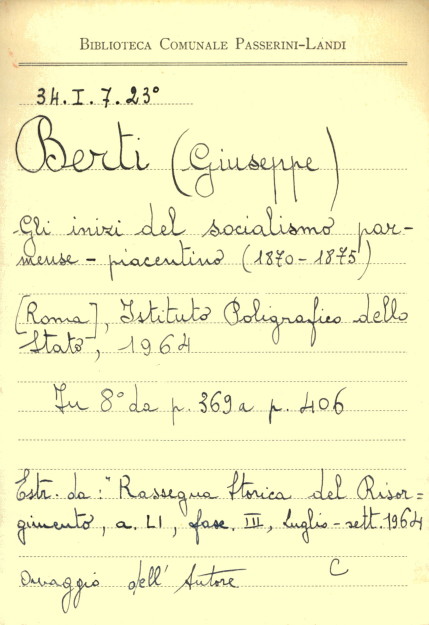 BIBLIOTECA COMUNALE PASSERINI-LANDI
34.I.7.23°
Berti (Giuseppe)
Gli inizi del socialismo par-
mense - piacentino (1870-1875)
[Roma], Istituto Poligrafico dello
Stato, 1964
In 8° da p. 369 a p. 406
Estr. da: "Rassegna Storica del Risor=
gimento, a. LI, fasc. III, Luglio-sett. 1964
Omaggio dell'Autore C